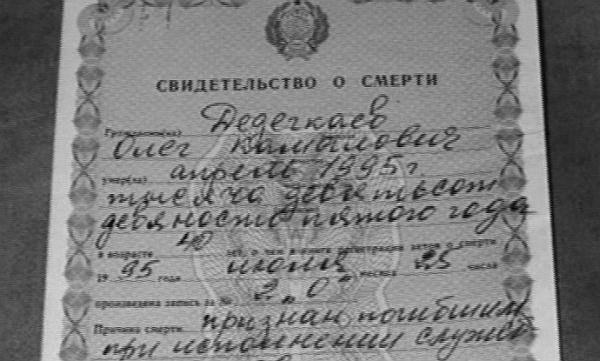 СВИДЕТЕЛЬСТВО О СМЕРТИ
Гражданин(ка) Дедегкаев
Олег Камылович
умер(ла) апрель 1995 г
тысяча девятьсот
девяносто пятого года
в возрасте 40 лет, о чем в книге регистрации актов о смерти
19 95 года июля месяца 25 числа
произведена запись за №
Причина смерти признан погибшим
при исполнении